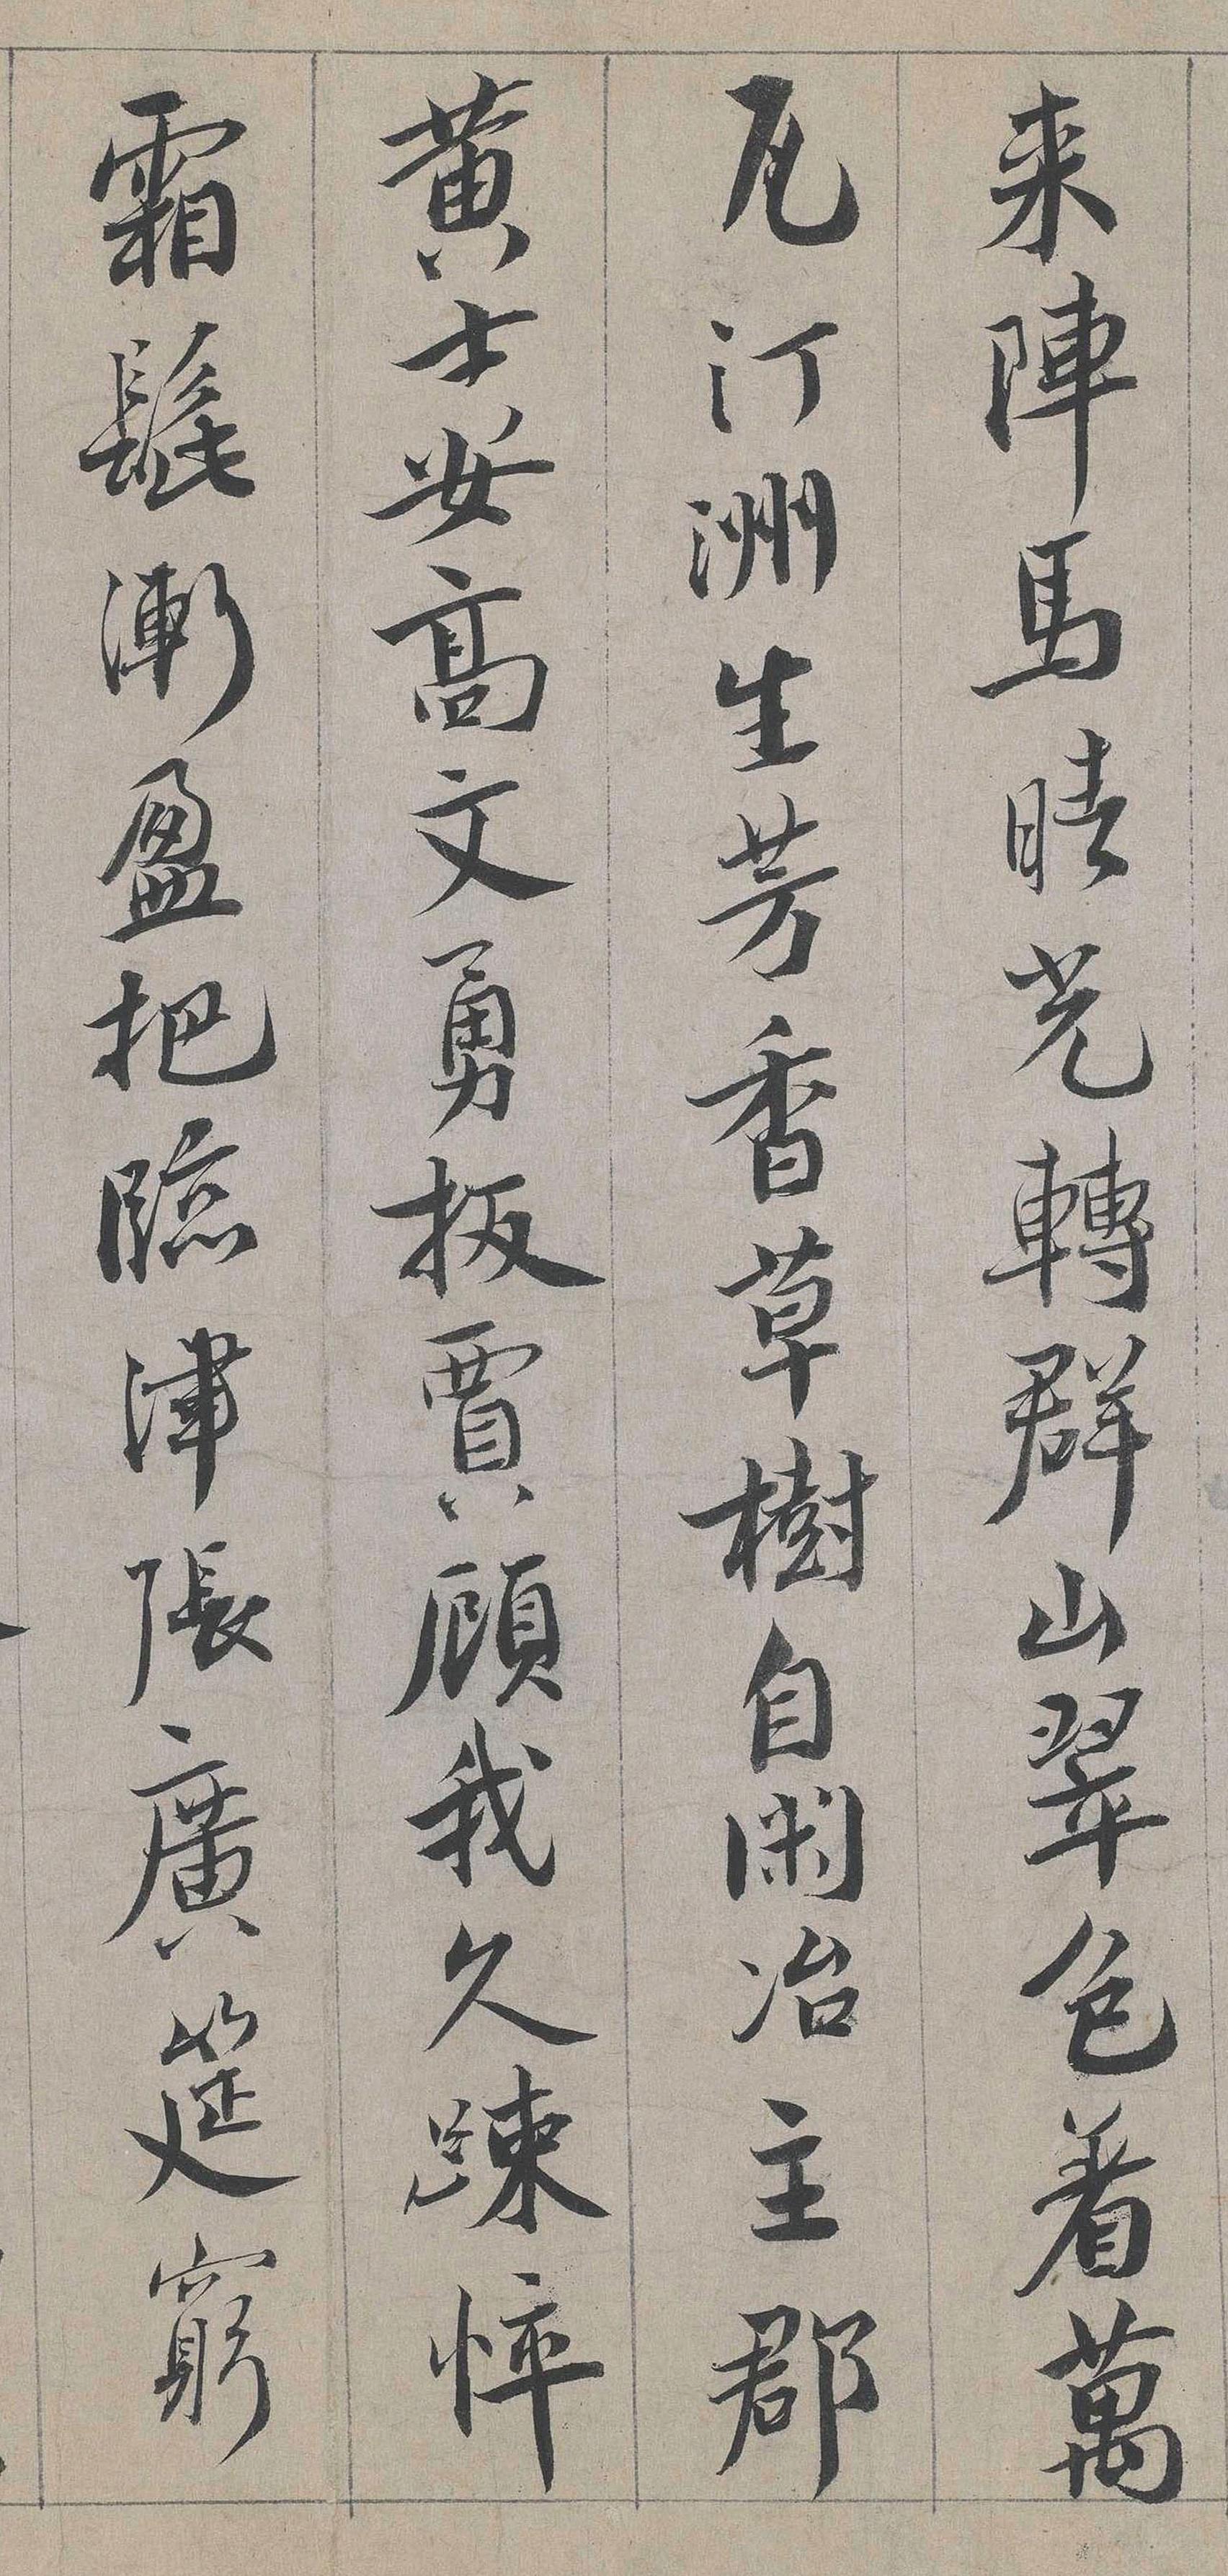 来陣馬晴光轉群山翠色着萬
瓦汀洲生芳香草樹自閑冶主郡
黄士安高文勇扳賈顧我久踈悴
霜髭漸盈把臨津張廣筵窮